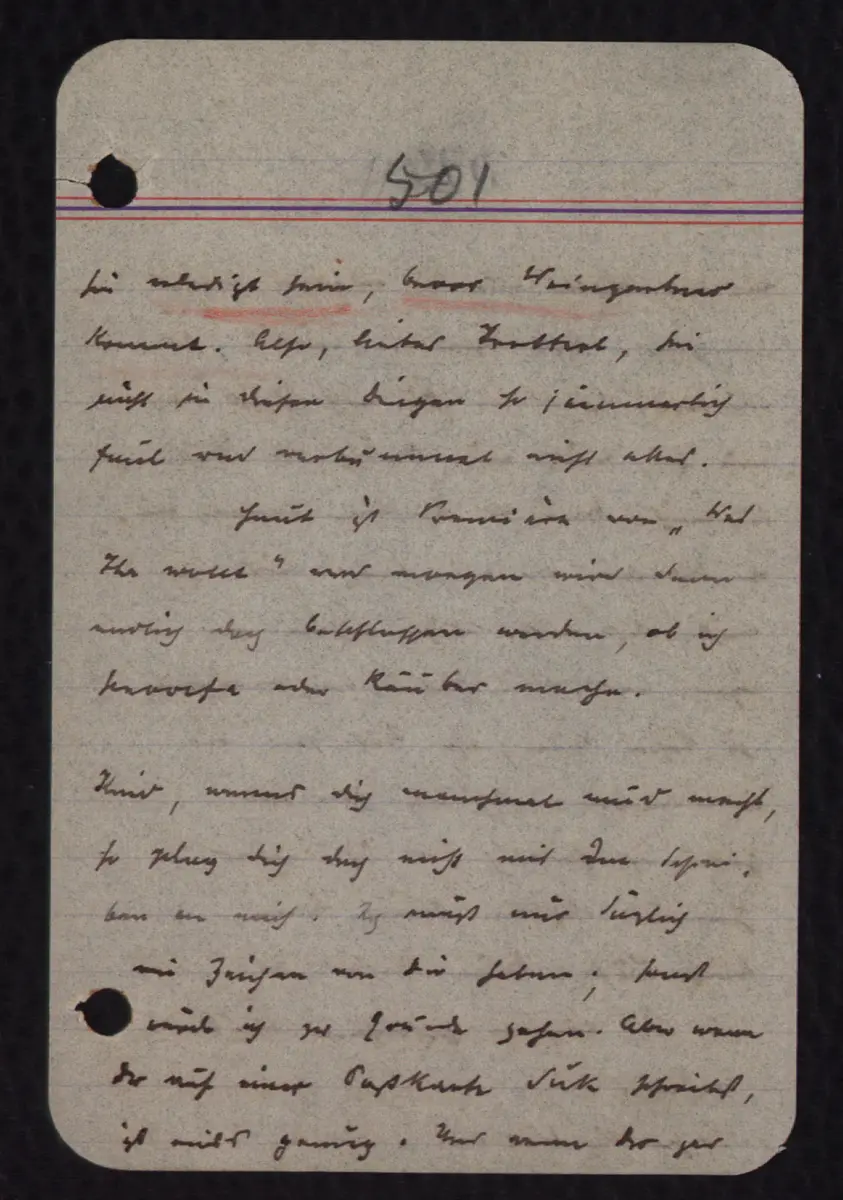 501
für erledigt sein, bevor Weingartner
kommt. Also, lieber Trottel, sei
nicht in diesen Dingen so jämmerlich
faul und verbummel nicht alles.
Heut ist Première von „Was
Ihr wollt" und morgen wird dann
endlich doch beschlossen werden, ob ich
oder Räuber mache.
Kind, wenns dich manchmal müd macht,
so plag dich doch nicht mit dem Schrei-
ben an mich. Ich muß nur täglich
ein Zeichen von dir haben; sonst
würde ich zu Grunde gehen. Aber wenn
du auf einer Postkarte schreibst,
ist mirs genug. Und wenn du gar